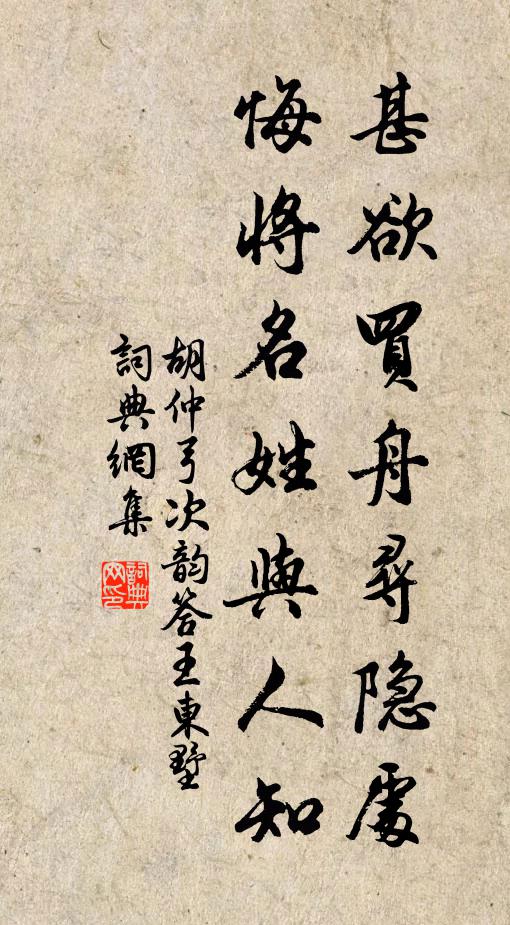 甚欲買舟尋隐處
悔將名姓與人知
胡仲弓次韵答王東墅
詞典網集
詞典网印